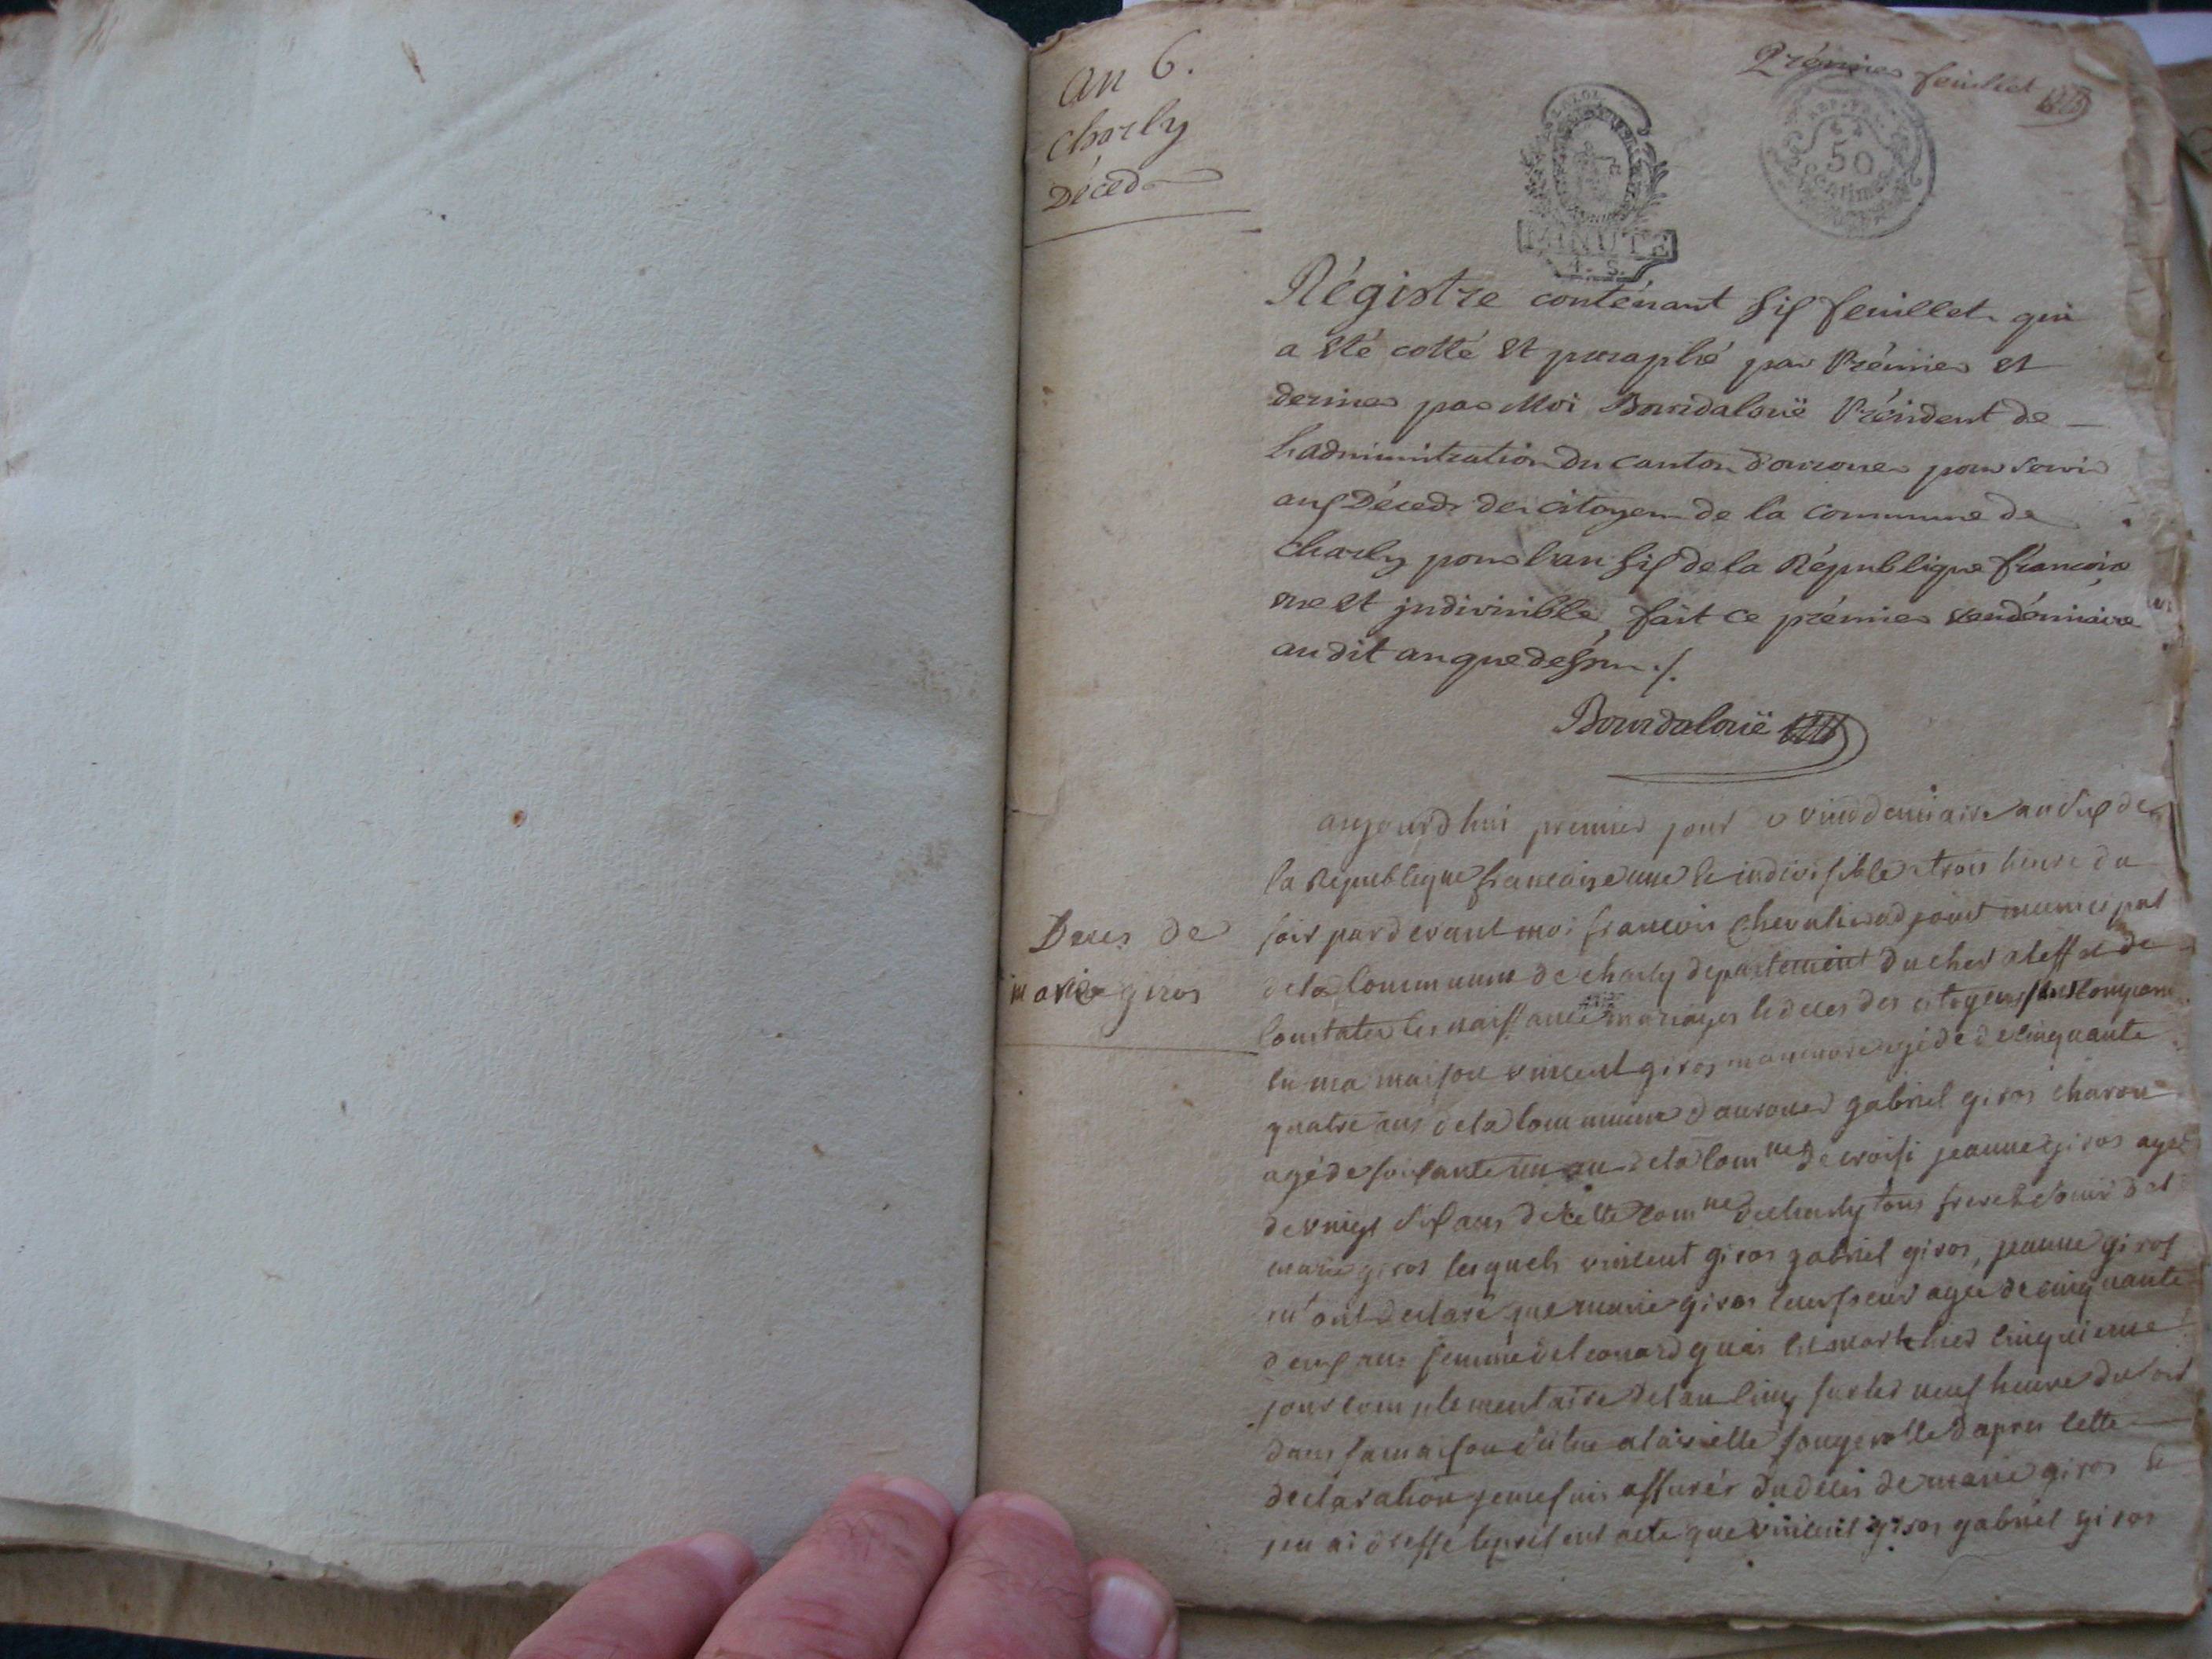 an 6.
Charly
Décéds
Prémier feuillet
50
centimes
MINUTE
Régistre conténant six feuillets qui
a été cotté et paraphé par Prémier et
dernier par Moi Bourdalouë Président de
l'administration du canton d'ourouer pour servir
aux Décéds des citoyens de la commune de
charly pour l'an six de la République françoise
une et indivisible, fait ce prémier vendémiaire
au dit an que dessus ./.
Bourdalouë
Deces de
marie giros
aujourd hui premier jour vinddemiaire an six de
la Republique francaise une et indivisible a trois heure du
soir par devant moi francois Chevalier adjoint municipal
de la Commune de charly departement du cher a leffet de
Constater les naissance mariages et deces des citoyens sont comparu
en ma maison vincent giros manuvre agé de cinquante
quatre ans de la Commune d ourouer gabriel giros charon
agé de soixante un an de la Comne de croisi jeanne giros agé
de vingt six ans de cette Comne de charly tous frere et soeur de
marie giros lesquels vincent giros gabriel giros, jeanne giros
m'ont declaré que marie giros leur soeur agée de cinquante
deux ans femme de leonard quai est morte hier cinquieme
jour complementaire de lan cinq sur les neuf heure du soir
dans sa maison situe a la vielle fougerolle dapres cette
declaration je me suis assurér du deces de marie giros et
jen ai dressé le present acte que vincent giros gabriel giros